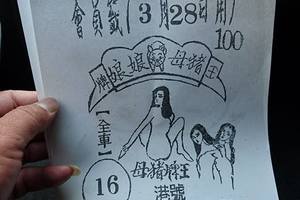 會員籤 3月28日用
100
牌娘娘母豬王
【全車】
母豬牌王
港號
16